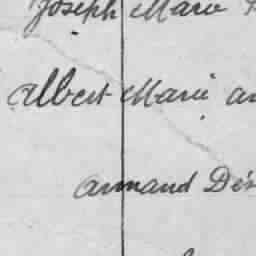 Joseph Marie
Albert Marie
Armand